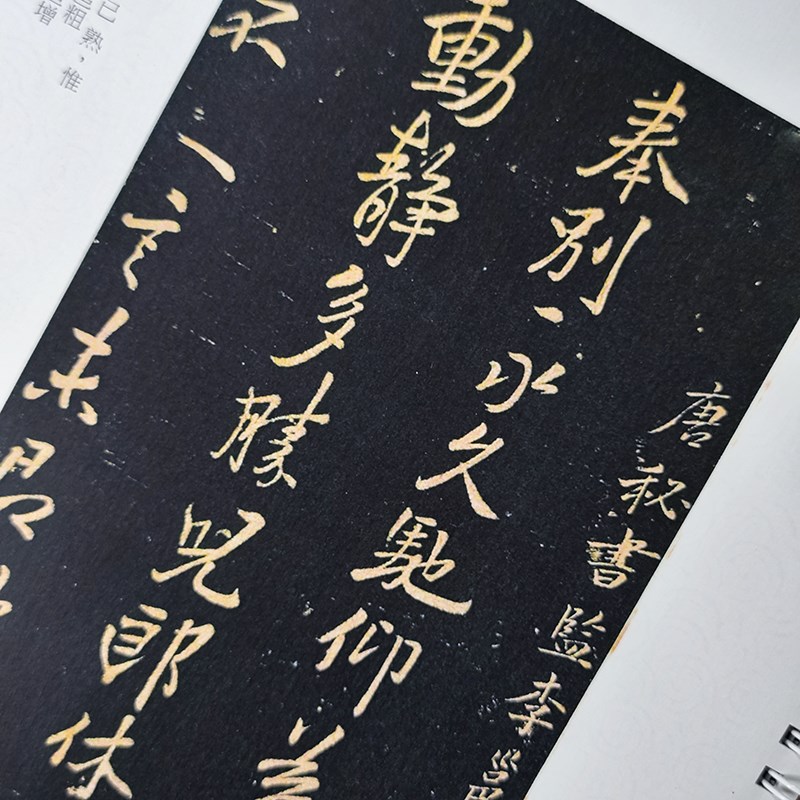 唐秘書監李邕
奉別永久馳仰
動靜多勝兒郎休
一言未
已熟，惟
粗
增